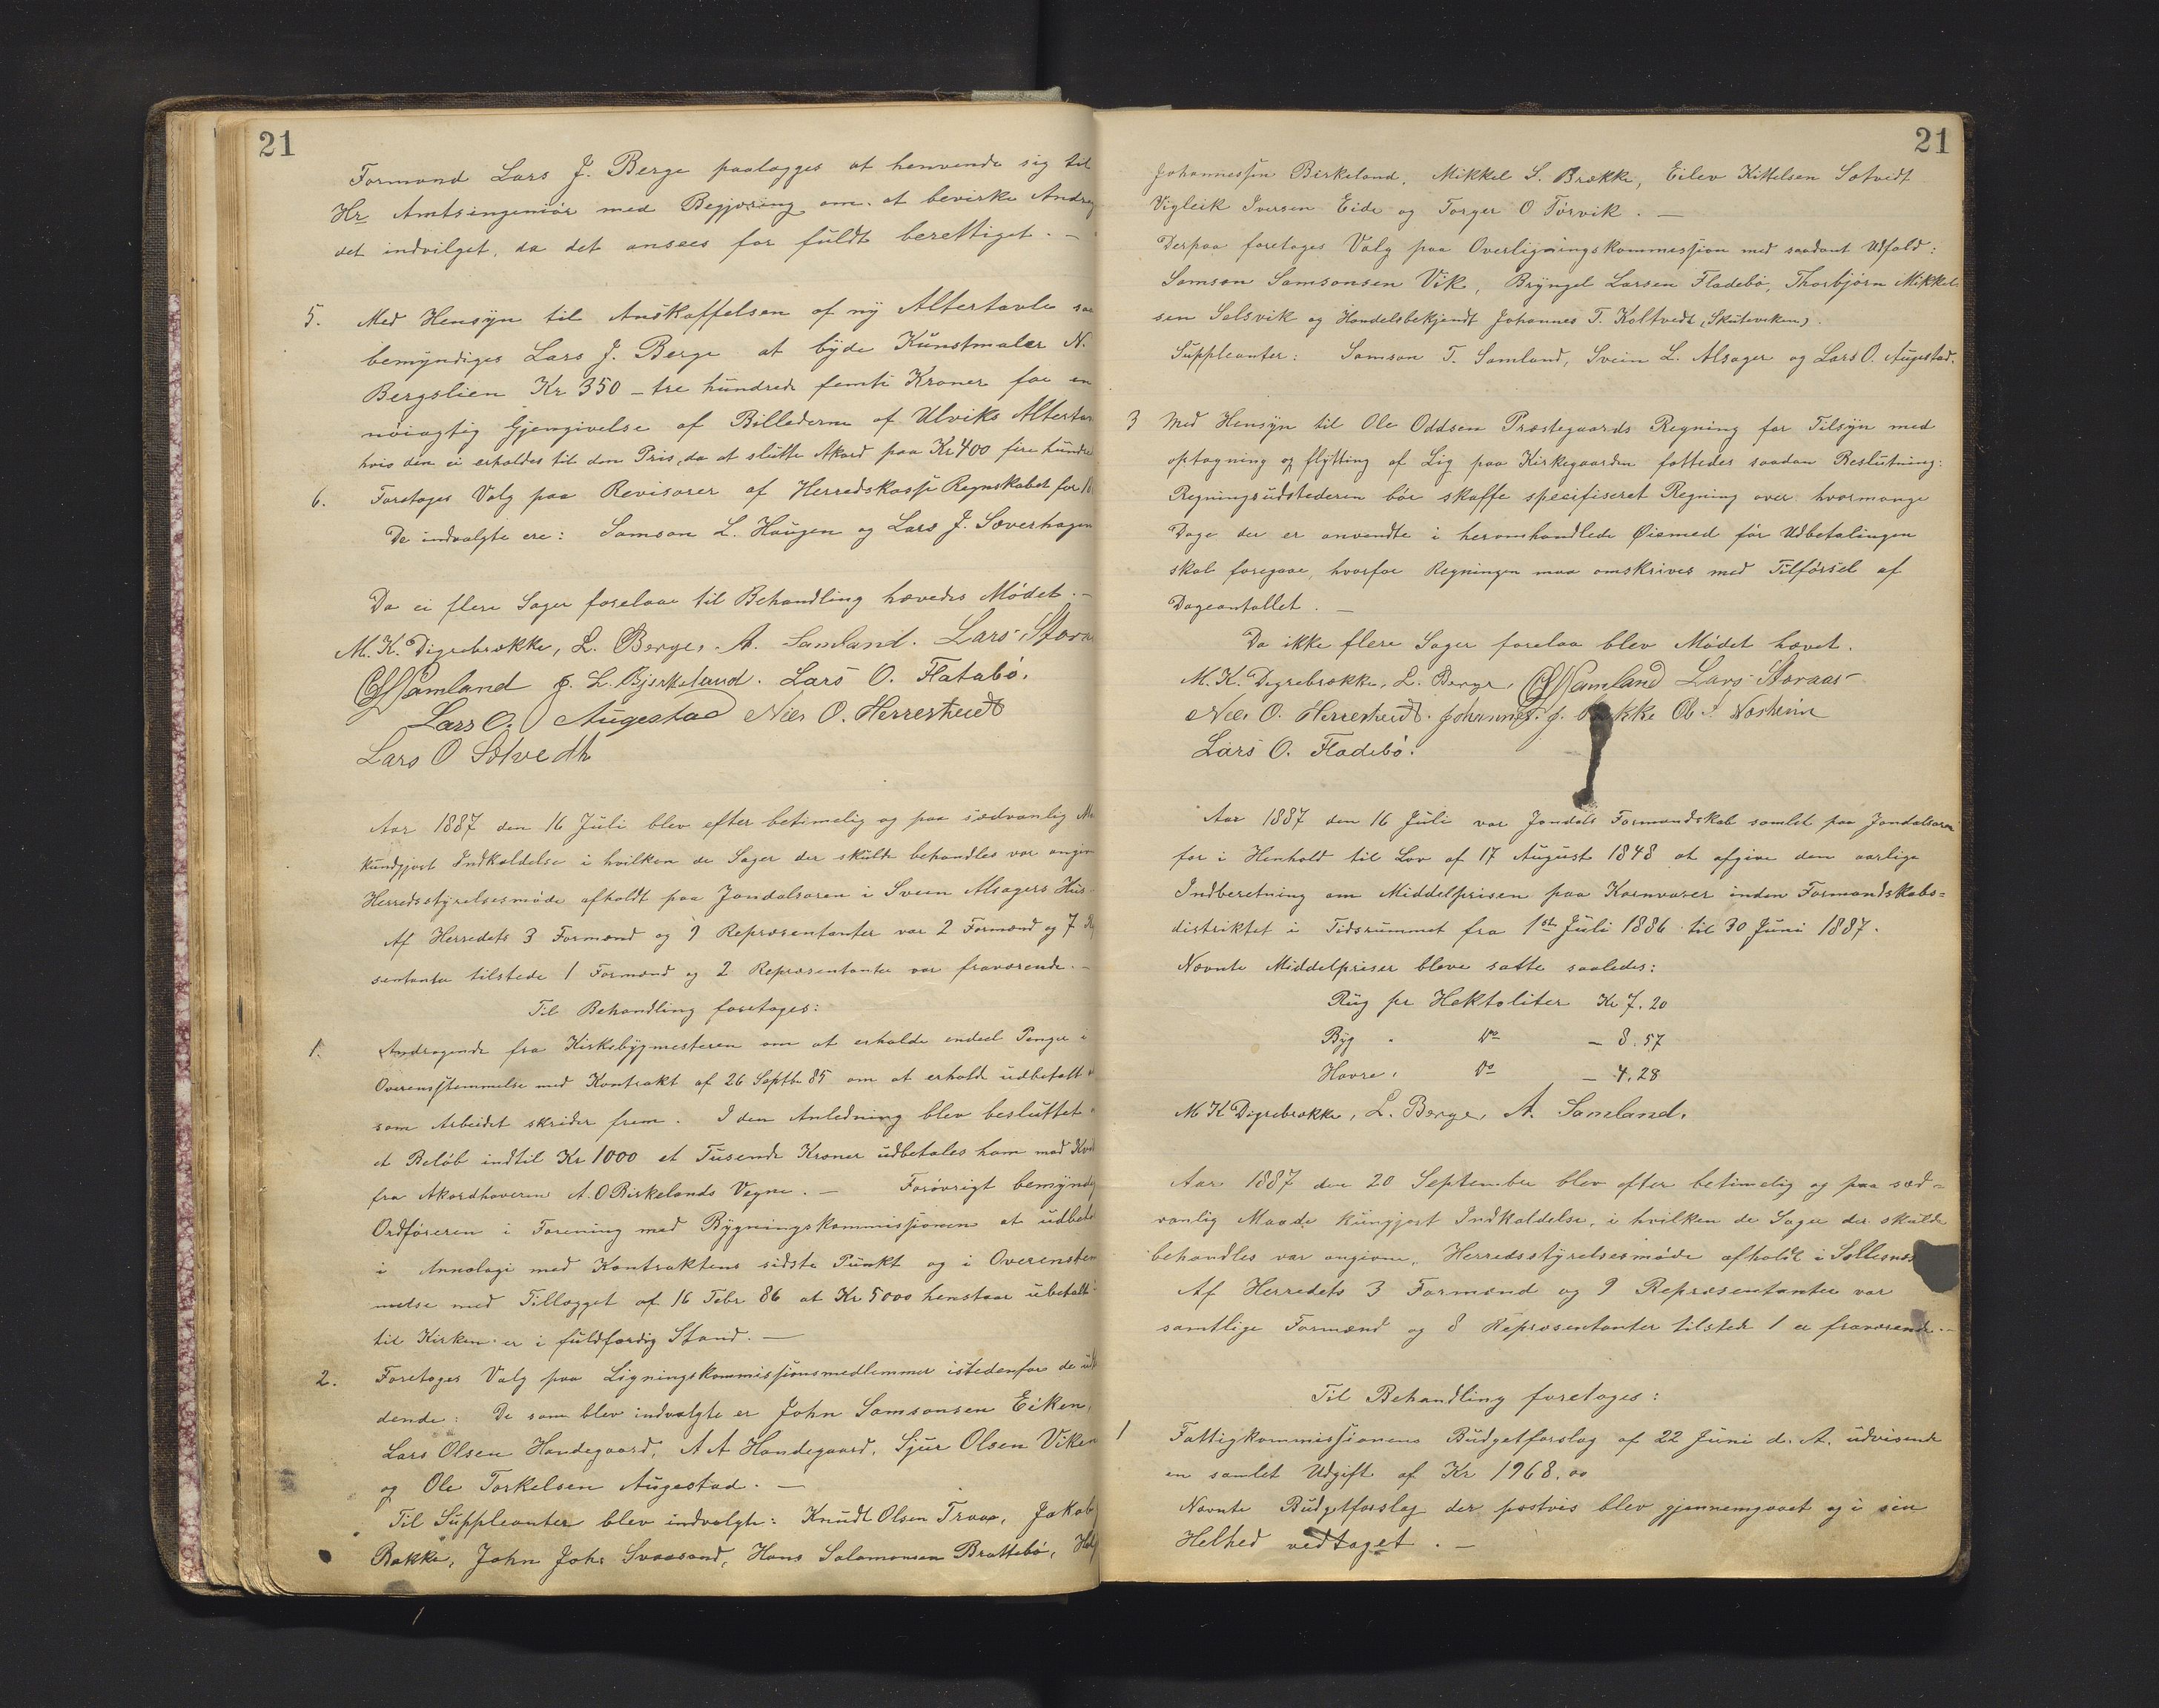 21
Formand Lars J. Berge paalægges at henvende sig til
Hr Amtsingeniör med Begjæring om at bevirke Andrag
det indvilget, da det ansees for fuldt berettiget. —
5. Med Hensyn til Anskaffelsen af ny Altertavle saa
bemyndiges Lars J. Berge at byde Kunstmaler N.
Bergslien Kr 350 – tre hundrede femti Kroner for en
nöiagtig Gjengivelse af Billederne af Ulviks Altertav
hvis den ei erholdes til den Pris, da at slutte Akord paa Kr 400 fire hundre
6. Foretoges Valg paa Revisorer af Herredskasse Regnskabet for
De indvalgte ere: Samson L. Haugen og Lars J. Sæverhagen
Da ei flere Sager forelaae til Behandling hævedes Mödet. —
M. K. Digrebrække, L. Berge, A. Samland. Lars Stora
Samland J. L. Bjerkeland. Lars O. Flatabö.
Lars O. Augestad Nils O. Herrestveidt
Lars O Sætvedt
Aar 1887 den 16 Juli blev efter betimelig og paa sædvanlig
kundgjort Indkaldelse i hvilken de Sager der skulde behandles var angiv
Herredsstyrelsesmöde afholdt paa Jondalsören i Svein Alsagers Hus.
Af Herredets 3 Formænd og 9 Repræsentanter var 2 Formænd og 7
sentanter tilstede 1 Formand og 2 Repræsentanter var fraværende. —
Til Behandling foretoges:
1. Andragende fra Kirkebygmesteren om at erholde endeel Penger i
Overensstemmelse med Kontrakt af 26 Septbr 85 om at erholde udbetalt
som Arbeidet skrider frem. I den Anledning blev besluttet
et Belöb indtil Kr 1000 et Tusende Kroner udbetales ham mod
fra Akordhaveren A. O Birkelands Vegne. — Forövrigt bemynd
Ordföreren i Forening med Bygningskommissionen at udbet
i Annalogi med Kontraktens sidste Punkt og i Overensstem
melse med Tillægget af 16 Febr 86 at Kr 5000 henstaar ubetalt
til Kirken er i fuldfærdig Stand. —
2. Foretoges Valg paa Ligningskommissionsmedlemmer istedenfor de
dende: De som blev indvalgte er John Samsonsen Eiken,
Lars Olsen Handegaard, A A Handegaard, Sjur Olsen Viken
og Ole Torkelsen Augestad. —
Til Suppleanter blev indvalgte: Knudt Olsen Traa, Jakob
Bakke, John Johs Svaasand, Hans Salamonsen Brattebö,
21
Johannessen Birkeland, Mikkel S. Brække, Eilev Kittelsen Sætvedt
Vigleik Iversen Eide og Torger O Törvik. —
Derpaa foretoges Valg paa Overligningskommession med saadant Udfald:
Samson Samsonsen Vik, Bryngel Larsen Fladebö, Thorbjörn Mikkel
sen Selsvik og Handelsbekjendt Johannes T. Koltvedt (Skuteviken).
Suppleanter: Samson T. Samland, Svein L. Alsager og Lars O. Augestad.
3 Med Hensyn til Ole Oddsen Præstegaards Regning for Tilsyn med
optagning og flytting af Lig paa Kirkegaarden fattedes saadan Beslutning:
Regningsudstederen bör skaffe specifiseret Regning over hvormange
Dage der er anvendte i heromhandlede Øiemed för Udbetalingen
skal foregaae, hvorfor Regningen maa omskrives med Tilförsel af
Dageantallet. —
Da ikke flere Sager forelaa blev Mödet hævet.
M. K. Digrebrække, L. Berge, Samland Lars Storaas
Nils O. Herrestveidt. Johannes J. Bakke Ol. Næsheim
Lars O. Fladebö.
Aar 1887 den 16 Juli var Jondals Formandskab samlet paa Jondalsören
for i Henhold til Lov af 17 August 1848 at afgive den aarlige
Indberetning om Middelprisen paa Kornvarer inden Formandskabs=
distriktet i Tidsrummet fra 1ste Juli 1886 til 30 Juni 1887.
Nævnte Middelpriser bleve satte saaledes:
Rug pr Hektoliter Kr 7.20
Byg " Do – 8.57
Havre " Do – 4.28
M K Digrebrække, L. Berge, A. Samland.
Aar 1887 den 20 September blev efter betimelig og paa sæd=
vanlig Maade kungjort Indkaldelse, i hvilken de Sager der skulde
behandles var angivne, Herredsstyrelsesmöde afholdt i Sollesnæs
Af Herredets 3 Formænd og 9 Repræsentanter var
samtlige Formænd og 8 Repræsentanter tilstede 1 er fraværende. —
Til Behandling foretoges:
1 Fattigkommissionens Budgetforslag af 22 Juni d. A. udvisende
en samlet Udgift af Kr 1968.00
Nævnte Budgetforslag der postvis blev gjennemgaaet og i sin
Helhed vedtaget. —